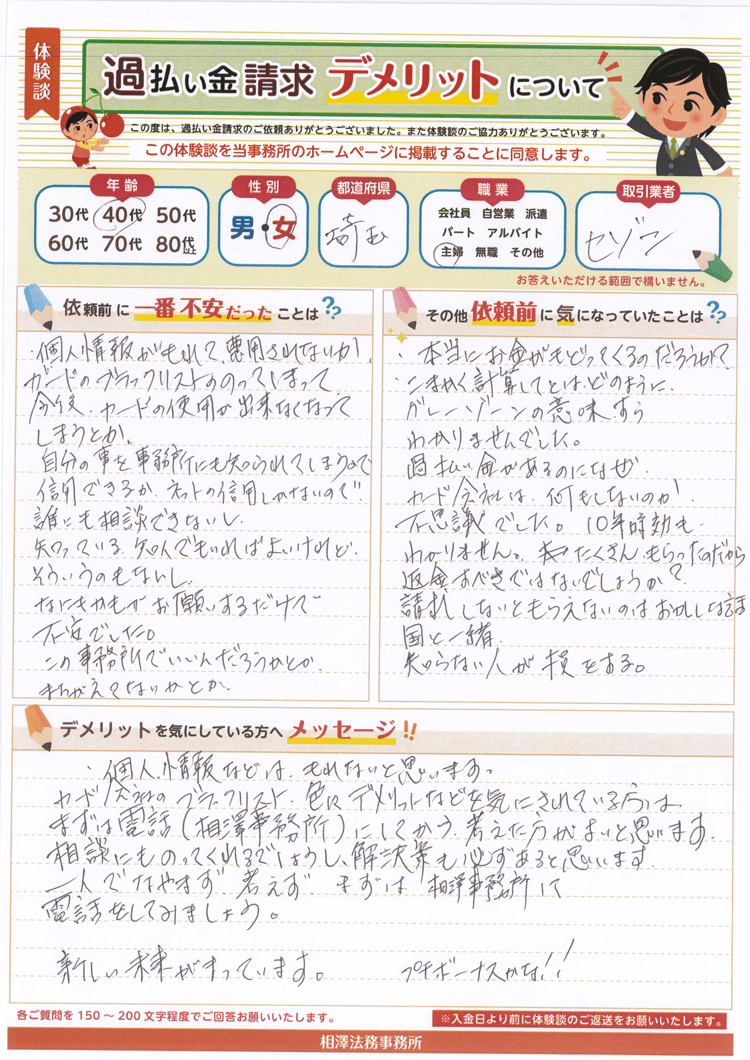 体験談
過払い金請求 デメリットについて
この度は、過払い金請求のご依頼ありがとうございました。また体験談のご協力ありがとうございます。
この体験談を当事務所のホームページに掲載することに同意します。
年齢
30代 40代 50代
60代 70代 80代以上
性別
男・女
都道府県
埼玉
職業
会社員 自営業 派遣
パート アルバイト
主婦 無職 その他
取引業者
セゾン
お答えいただける範囲で構いません。
依頼前に一番不安だったことは??
個人情報がもれて、悪用されないか、
カードのブラックリストものってしまって
今後、カードの使用が出来なくなって
しまうとか、
自分の事を事務所にも知られてしまうので
信用できるか、ネットの信用しかないので
誰にも相談できないし、
知っている、知人でもいればよいけれど、
そういうのもないし、
なにもかもがお願いするだけで
不安でした。
この事務所でいいんだろうかとか、
まちがえてないかとか、
その他依頼前に気になっていたことは??
・本当にお金がもどってくるのだろうか?
こまかく計算してとは、どのように、
グレーゾーンの意味すら
わかりませんでした。
過払い金があるのになぜ、
カード会社は、何もしないのか、
不思議でした。10年時効も
わかりません。たくさんもらったのだから
返金すべきではないでしょうか?
請求しないともらえないのはおかしな話
国と一緒、
知らない人が損をする。
デメリットを気にしている方へメッセージ!!
・個人情報などは、もれないと思います。
カード会社のブラックリスト、色々デメリットなどを気にされている方は
まずは電話(相澤事務所)にしてから、考えた方がよいと思います。
相談にものってくれるでしょうし、解決策も必ずあると思います。
一人でなやまず、考えず、まずは、相澤事務所に
電話をしてみましょう。
新しい未来がまっています。 プチボーナスかな!!
各ご質問を150～200文字程度でご回答お願いいたします。
※入金日より前に体験談のご返送をお願いいたします。
相澤法務事務所